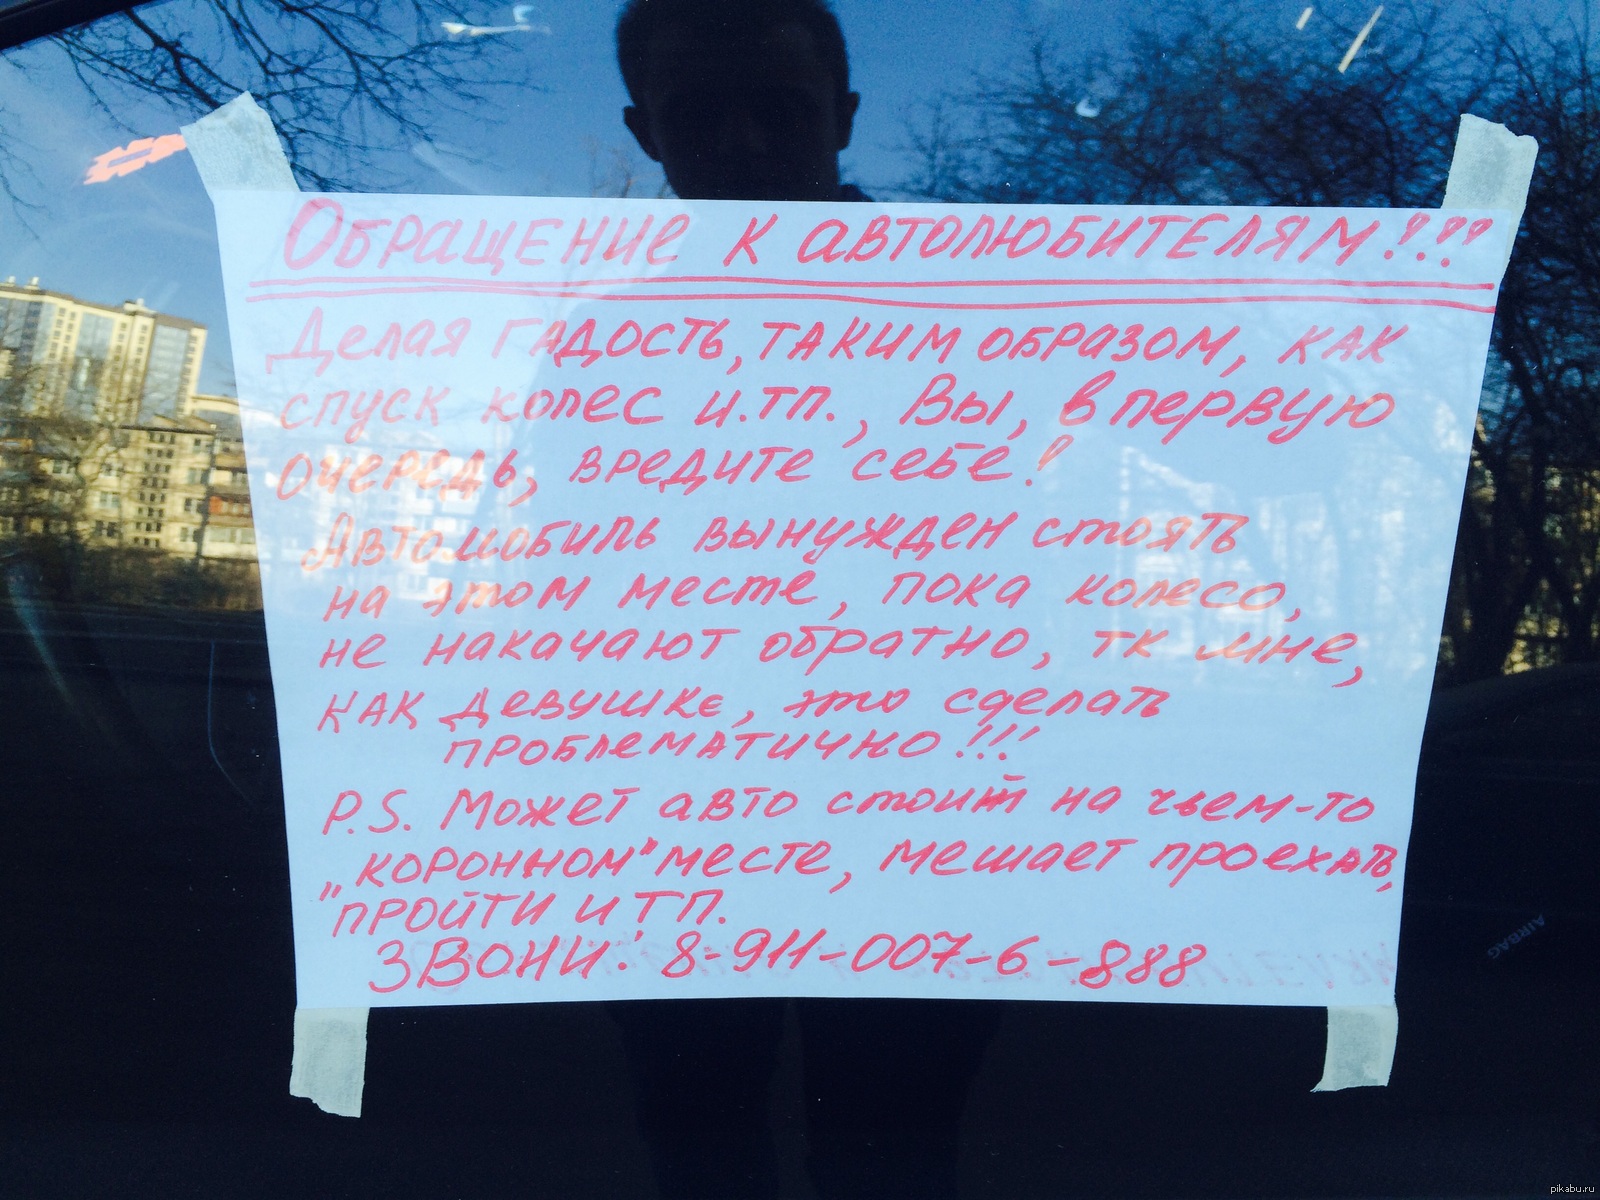 Обращение к автолюбителям!!!
Делая гадость, таким образом, как
спуск колес и.тп., Вы, в первую
очередь, вредите себе!
Автомобиль вынужден стоять
на этом месте, пока колесо,
не накачают обратно, тк мне,
как девушке, это сделать
проблематично!!!
P.S. Может авто стоит на чьем-то
„коронном" месте, мешает проехать,
пройти и тп.
Звони: 8-911-007-6-888
AIRBAG
pikabu.ru